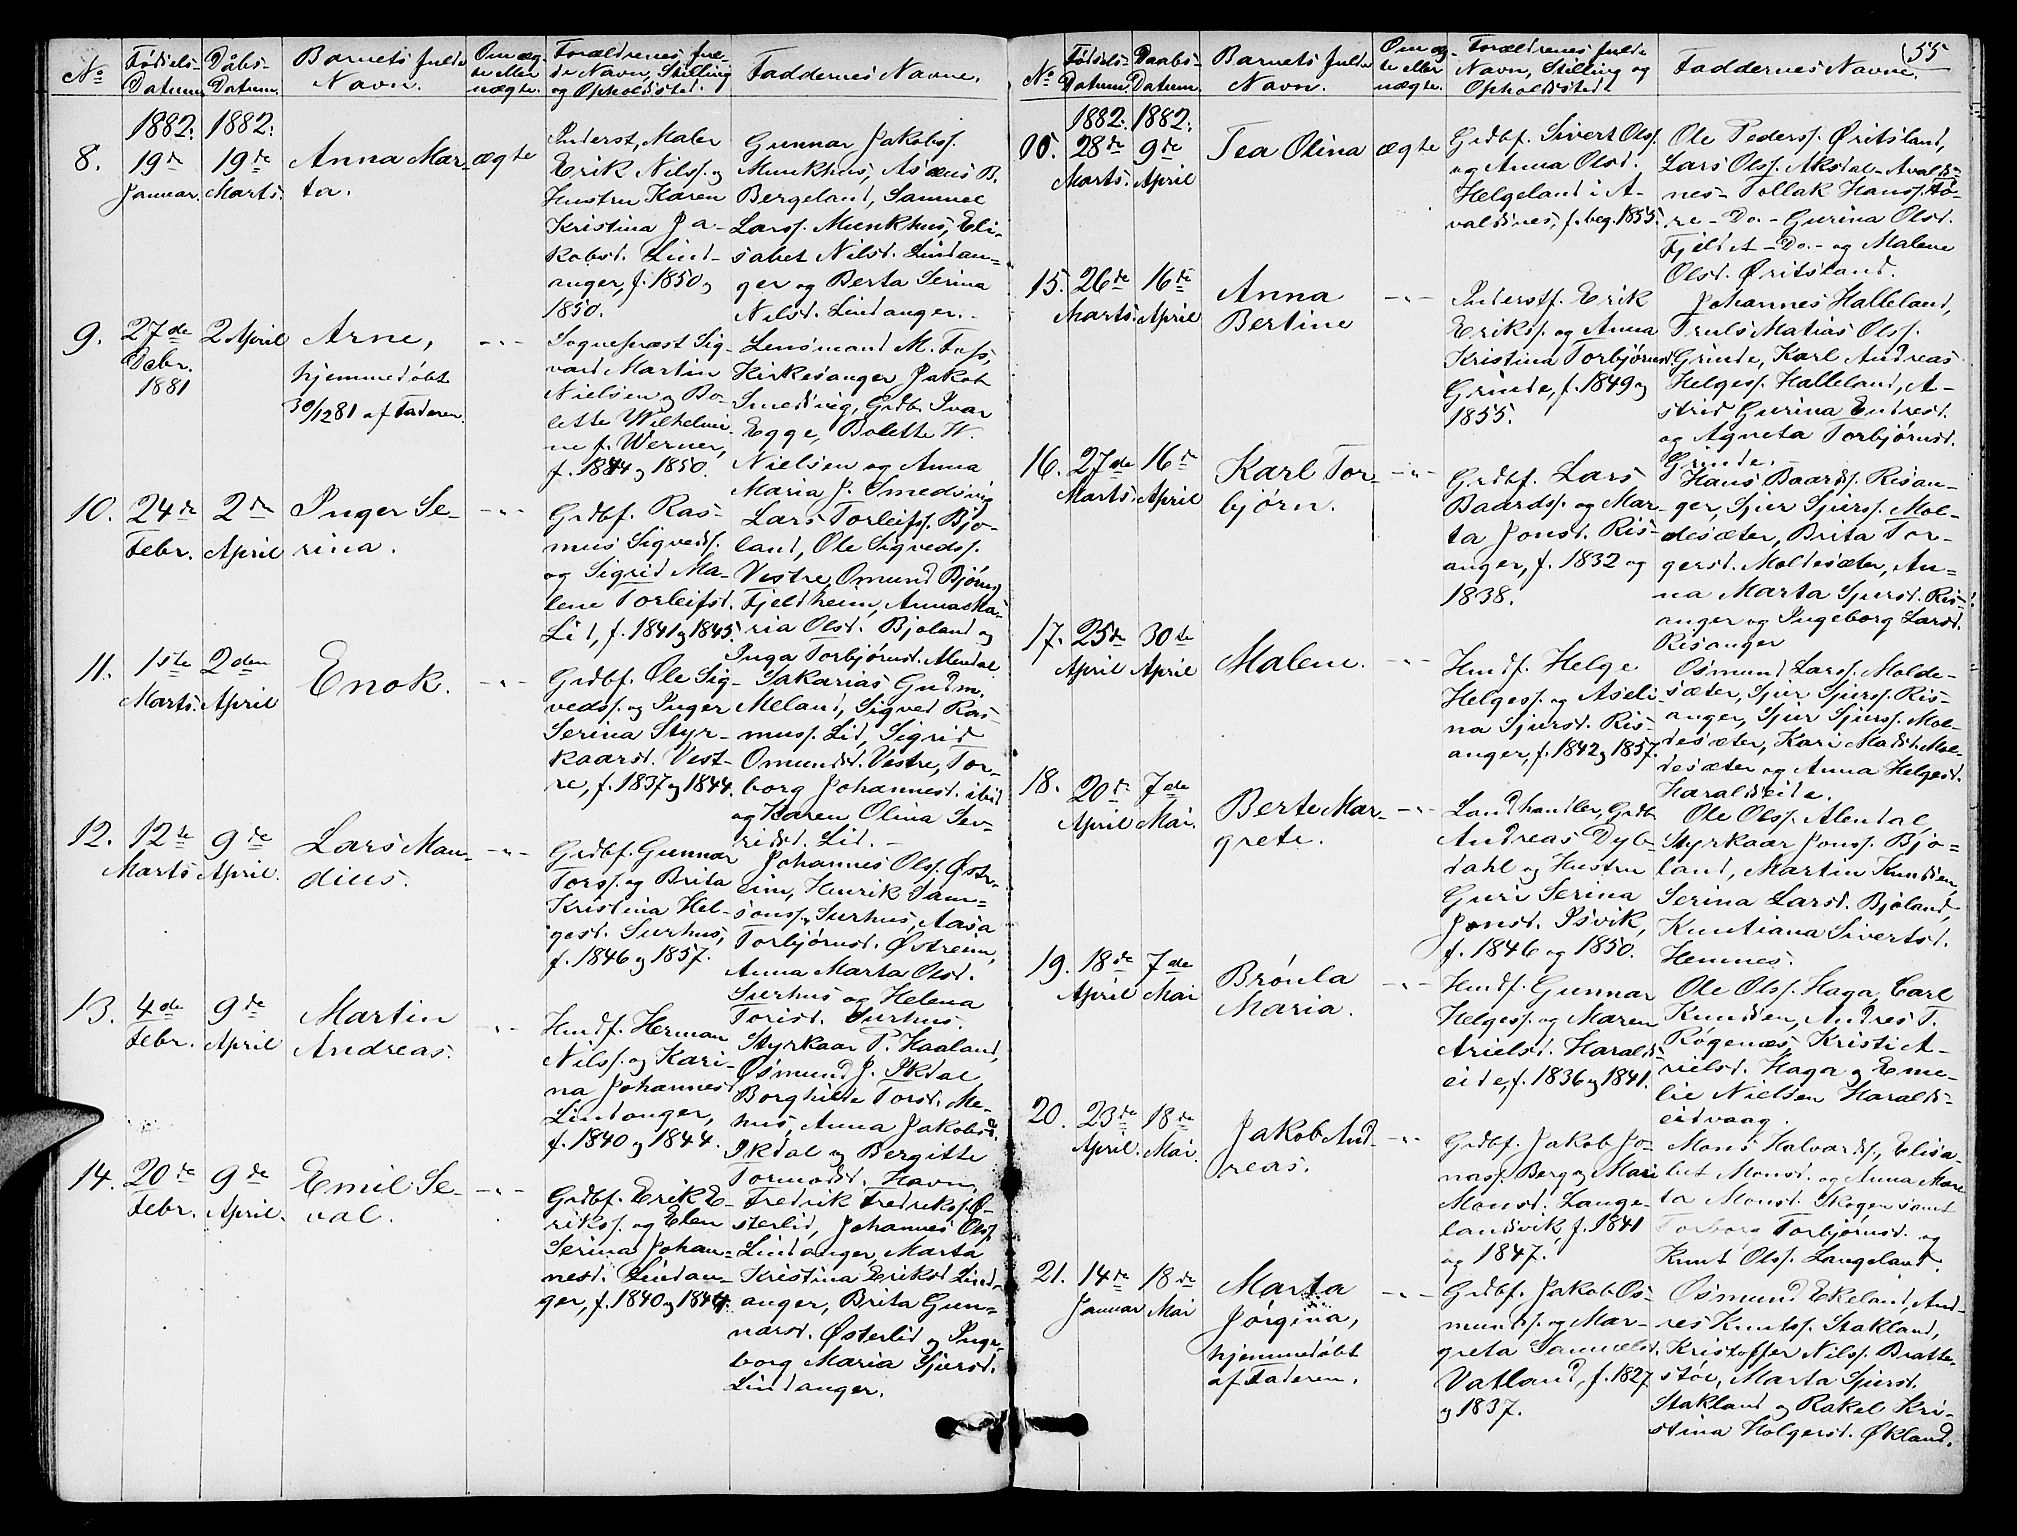 No
Fødsels-
Datum.
Dåbs-
Datum.
Barnets fulde
Navn.
Om æg-
te eller
uægte.
Forældrenes ful-
de Navn, Stilling
og Opholdssted.
Faddernes Navne.
1882: 1882:
8.
19de
Januar.
19de
Marts.
Anna Mar-
ta.
ægte
Inderst, Maler
Erik Nilss. og
Hustru Karen
Kristina Ja-
kobsd. Lind-
anger, f. 1850 og
1850.
Gunnar Jakobss.
Munkhus, Asæus B.
Bergeland, Samuel
Larss. Munkhus, Eli-
sabet Nilsd. Lindan-
ger og Berta Serina
Nilsd. Lindanger.
9.
27de
Debr.
1881
2 April
Arne,
hjemmedøbt
30/12 81 af Faderen.
-"-
Sognepræst Sig-
vard Martin
Nielsen og Bo-
lette Wilhelmi-
ne f. Werner,
f. 1844 og 1850.
Lensmand M. Foss,
Kirkesanger Jakob
Smedsvig, Grdb. Ivar
Egge, Bolette W.
Nielsen og Anna
Maria J. Smedsvig
10.
24de
Febr.
2den
April
Inger Se-
rina.
-"-
Grdbf. Ras-
mus Sigvedss.
og Sigrid Ma-
lene Torleifsd.
Lid, f. 1841 og 1845.
Lars Torleifss. Bjo-
land, Ole Sigvedss.
Vestre, Omund Bjørns.
Fjeldheim, Anna Ma-
ria Olsd. Bjoland og
Inga Torbjørnsd. Alendal
11.
1ste
Marts.
2den
April
Enok.
-"-
Grdbf. Ole Sig-
vedss. og Inger
Serina Styr-
kaarsd. Vest-
re, f. 1837 og 1844.
Sakarias Gudm.
Meland, Sigved Ras-
muss. Lid, Sigrid
Omundsd. Vestre, Tor-
borg Johannesd. ibid
og Karen Olina Sev-
ridsd. Lid.
12.
12te
Marts
9de
April.
Lars Man-
dius.
-"-
Grdbf. Gunnar
Torss. og Brita
Kristina Hel-
gesd. Surhus,
f. 1846 og 1857.
Johannes Olss. Østr-
eim, Henrik Sam-
sonss. Surhus, Aasa
Torbjørnsd. Østreim,
Anna Marta Olsd.
Surhus og Helena
Torisd. Surhus.
13.
4de
Febr.
9de
April
Martin
Andreas.
-"-
Husmf. Herman
Nilss. og Kari-
na Johannesd
Lindanger,
f. 1840 og 1844.
Styrkaar P. Haaland,
Osmund J. Ikdal
Borghilde Torsd. Me-
hus, Anna Jakobsd.
Ikdal og Bergitte
Tormodsd. Havn.
14.
20de
Febr.
9de
April.
Emil Se-
val.
-"-
Grdbf. Erik E-
rikss. og Elen
Serina Johan-
nesd. Lindan-
ger, f. 1840 og 1844.
Fredrik Fredrikss. Ø-
sterlid, Johannes Olss.
Lindanger, Marta
Kristina Eriksd. Lind-
anger, Brita Gun-
narsd. Østerlid og Inge-
borg Maria Sjursd.
Lindanger.
55
No
Fødsels-
Datum.
Daabs-
Datum.
Barnets fulde
Navn.
Om æg-
te eller
uægte.
Forældrenes fulde
Navn, Stilling og
Opholdssted.
Faddernes Navne.
1882: 1882:
28de
Marts.
9de
April
Tea Olina
ægte
Grdbf. Sivert Olss.
og Anna Olsd.
Helgeland i A-
valdsnes, f. beg. 1855.
Ole Pederss. Øritsland,
Lars Olss. Aksdal - Avalds-
nes - Tollak Hanss. Tø-
re - Do. - Gurina Olsd.
Fjeldet - Do. - og Malene
Olsd. Øritsland.
15.
26de
Marts.
16de
April
Anna
Bertine
-"-
Inderstf. Erik
Erikss. og Anna
Kristina Torbjørnsd
Grinde, f. 1849 og
1855.
Johannes Halleland,
Truls Matias Olss.
Grinde, Karl Andreas
Helgess. Halleland, A-
strid Gurina Endresd.
og Agneta Torbjørnsd.
Grinde.
16.
27de
Marts.
16de
April
Karl Tor-
bjørn.
-"-
Grdbf. Lars
Baardss. og Mar-
ta Jonsd. Ris-
anger, f. 1832 og
1838.
Hans Baardss. Risan-
ger, Sjur Sjurss. Mol-
desæter, Brita Tor-
gersd. Moldesæter, An-
na Marta Sjursd. Ris-
anger og Ingeborg Larsd.
Risanger
17.
25de
April
30te
April
Malene.
-"-
Husmf. Helge
Helgess. og Aseli-
na Sjursd. Ris-
anger, f. 1842 og 1857.
Osmund Larss. Molde-
sæter, Sjur Sjurss. Ris-
anger, Sjur Sjurss. Mol-
desæter, Kari Madsd. Mol-
desæter og Anna Helgesd.
Haraldseide.
18.
20de
April
7de
Mai.
Berte Mar-
grete.
-"-
Landhandler, Grdb.
Andreas Dyb-
dahl og Hustru
Guri Serina
Jonsd. Isvik,
f. 1846 og 1850.
Ole Olss. Alendal,
Styrkaar Jonss. Bjo-
land, Martin Knudsen,
Serina Larsd. Bjoland,
Knutiana Sivertsd.
Hemnes.
19.
18de
April
7de
Mai
Brønla
Maria.
-"-
Husmf. Gunnar
Helgess. og Maren
Arielsd. Haralds-
eide, f. 1836 og 1841.
Ole Olss. Haga, Carl
Knudsen, Andres T.
Røgenæs, Kristi A-
rielsd. Haga og Eme-
lie Nielsen Haralds-
eidvaag.
20.
23de
April.
18de
Mai.
Jakob And-
reas.
-"-
Grdbf. Jakob Jo-
nass. Berg og Mari
Monsd. Lange-
landsvik, f. 1841
og 1847.
Mons Halvardss., Elisa-
bet Monsd. og Anna Mar-
ta Monsd. Skogen samt
Torborg Torbjørnsd. og
Knut Olss. Langeland.
21.
14de
Januar
18de
Mai
Marta
Jørgina,
hjemmedøbt
af Faderen.
-"-
Grdbf. Jakob Os-
mundss. og Mar-
greta Samuelsd.
Vatland, f. 1827
og 1837.
Osmund Ekeland, And-
res Knutss. Stakland,
Kristoffer Nilss. Bratte-
støe, Marta Sjursd.
Stakland og Rakel Kri-
stina Holgersd. Økland.